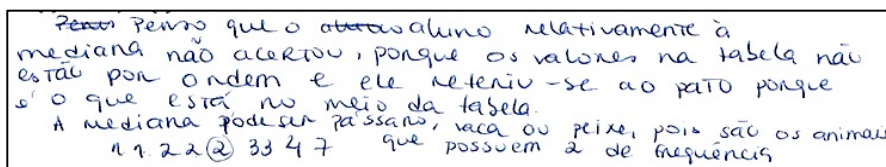 Penso que o aluno relativamente à
mediana não acertou, porque os valores na tabela não
estão por ordem e ele referiu-se ao pato porque
é o que está no meio da tabela.
A mediana pode ser pássaro, vaca ou peixe, pois são os animais
1 1 2 2 2 3 3 4 7 que possuem 2 de frequência